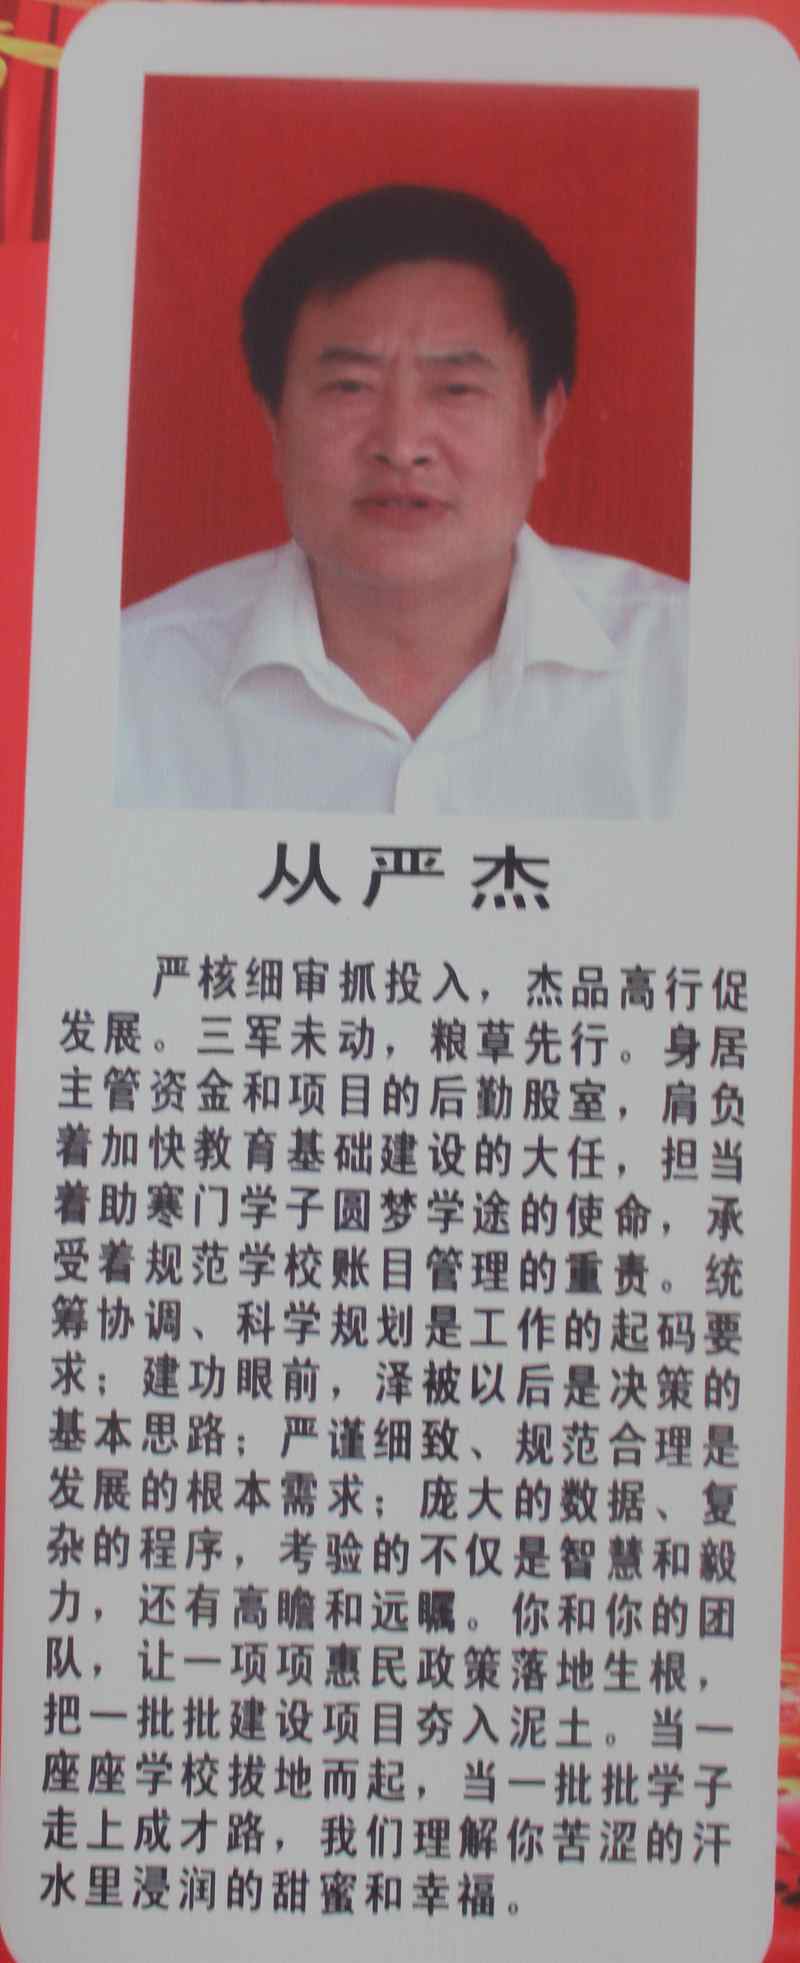 从严杰
严核细审抓投入，杰品高行促
发展。三军未动，粮草先行。身居
主管资金和项目的后勤股室，肩负
着加快教育基础建设的大任，担当
着助寒门学子圆梦学途的使命，承
受着规范学校账目管理的重责。统
筹协调、科学规划是工作的起码要
求；建功眼前，泽被以后是决策的
基本思路；严谨细致、规范合理是
发展的根本需求；庞大的数据、复
杂的程序，考验的不仅是智慧和毅
力，还有高瞻和远瞩。你和你的团
队，让一项项惠民政策落地生根，
把一批批建设项目夯入泥土。当一
座座学校拔地而起，当一批批学子
走上成才路，我们理解你苦涩的汗
水里浸润的甜蜜和幸福。